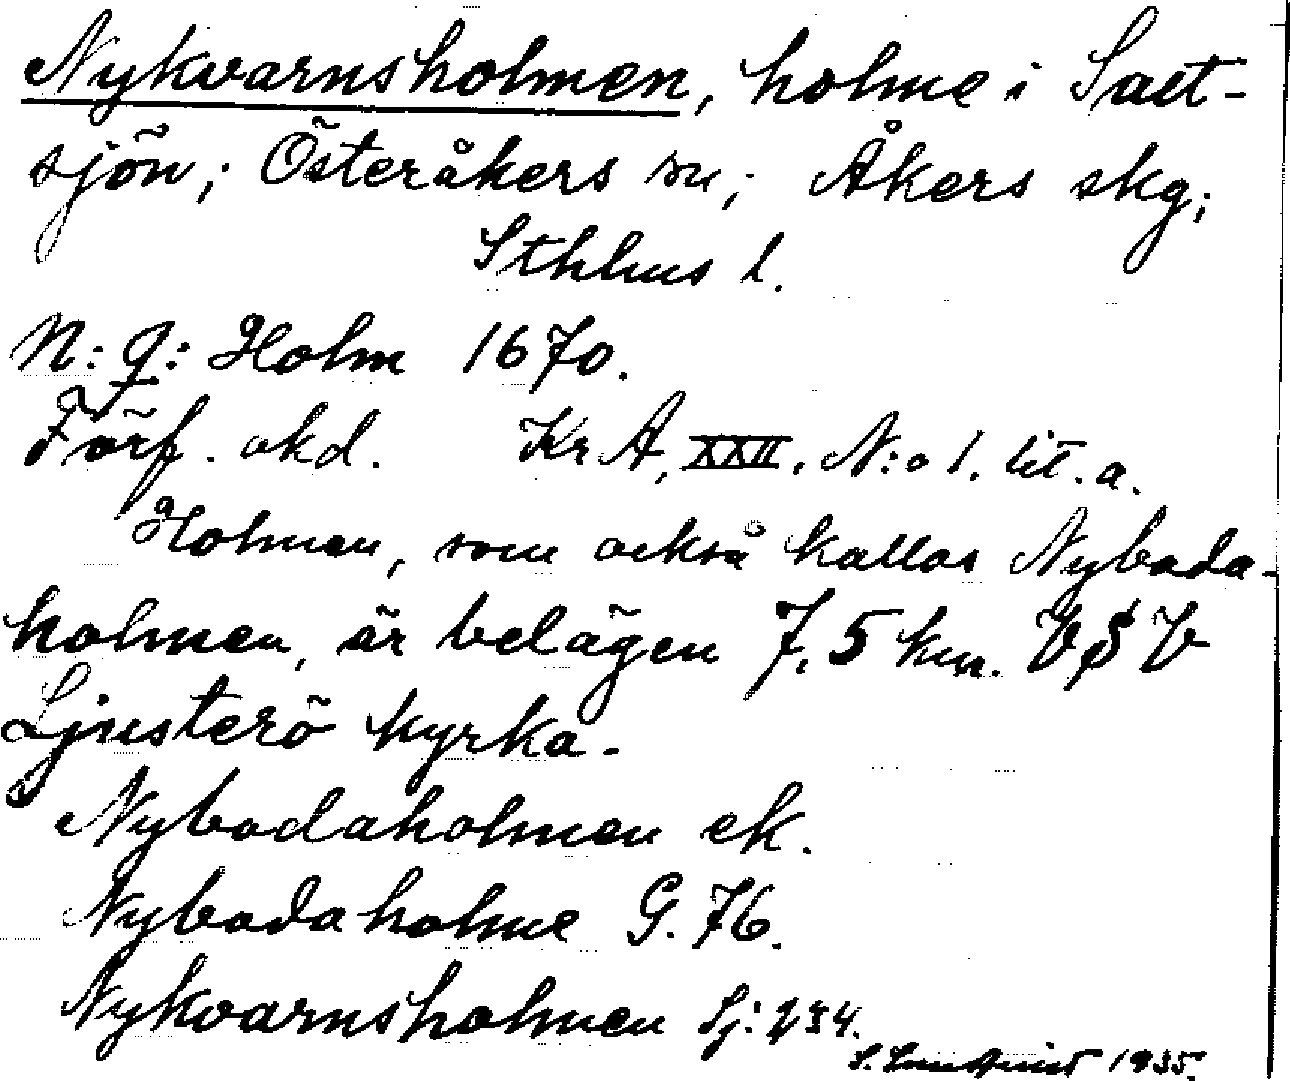 Nykvarnsholmen, holme i Salt-
sjön; Österåkers sn; Åkers skg;
Sthlms l.
N: q: Holm 1670.
Förf. okd. Kr A, XXII. N:o 1. lit. a.
Holmen, som också kallas Nyboda-
holmen, är belägen 7,5 km. V S V
Ljusterö kyrka.
Nybodaholmen ek.
Nybodaholme G. 76.
Nykvarnsholmen Sj: 234.
S. Lundqvist 1935.